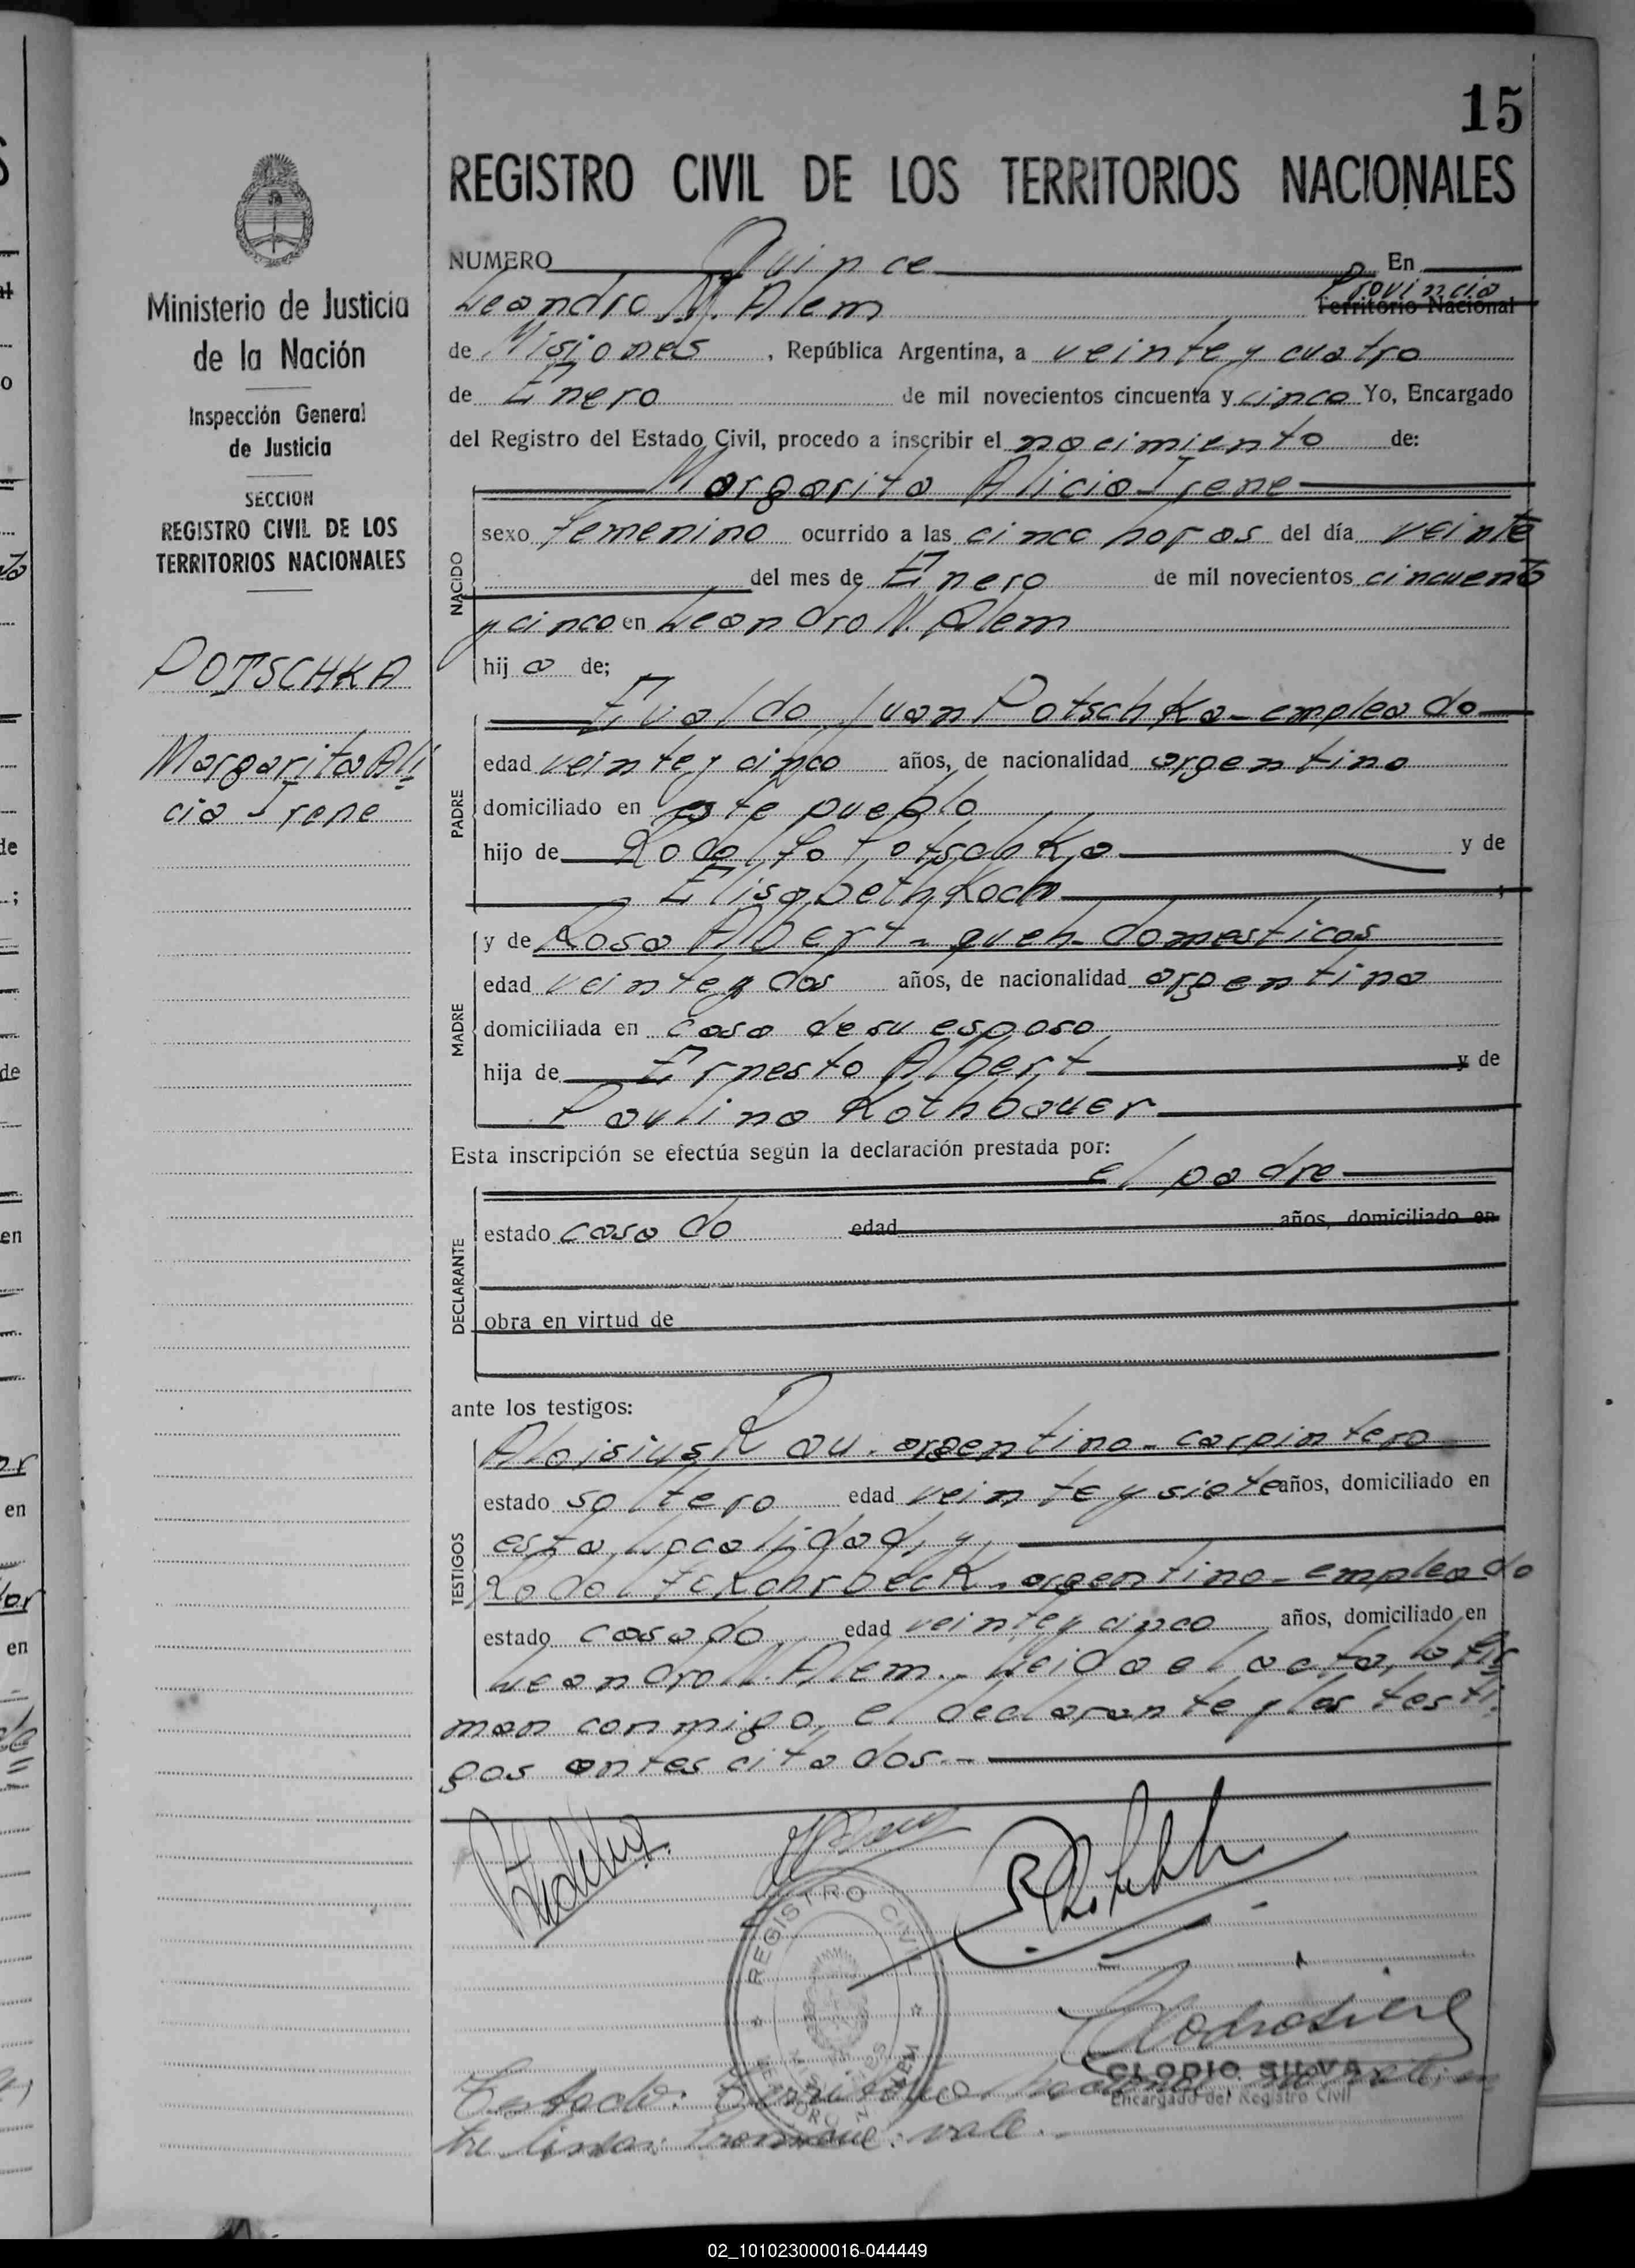 15
REGISTRO CIVIL DE LOS TERRITORIOS NACIONALES
Ministerio de Justicia
de la Nación
Inspección General
de Justicia
SECCION
REGISTRO CIVIL DE LOS
TERRITORIOS NACIONALES
POTSCHKA
Margarita Ali
cia Irene
NUMERO Quince En
Leandro N. Alem Provincia Territorio Nacional
de Misiones, República Argentina, a veinte y cuatro
de Enero de mil novecientos cincuenta y cinco Yo, Encargado
del Registro del Estado Civil, procedo a inscribir el nacimiento de:
NACIDO
Margarita Alicia Irene
sexo femenino ocurrido a las cinco horas del día veinte
del mes de Enero de mil novecientos cincuenta
y cinco en Leandro N. Alem
hij a de;
PADRE
Evaldo Juan Potschka - empleado
edad veinte y cinco años, de nacionalidad argentino
domiciliado en este pueblo
hijo de Rodolfo Potschka y de
Elisabeth Koch;
MADRE
y de Rosa Albert - queh. domesticos
edad veinte y dos años, de nacionalidad argentina
domiciliada en casa de su esposo
hija de Ernesto Albert y de
Paulina Rothbauer
Esta inscripción se efectúa según la declaración prestada por:
el padre
DECLARANTE
estado casado edad años, domiciliado en
obra en virtud de
ante los testigos:
TESTIGOS
Aloisius Rau - argentino - carpintero
estado soltero edad veinte y siete años, domiciliado en
esta localidad, y
Rodolfo Rohrbeck - argentino - empleado
estado casado edad veinte y cinco años, domiciliado en
Leandro N. Alem. - Leida el acta, la fir
man conmigo, el declarante y los testi
gos antes citados. -
REGISTRO CIVIL
LEANDRO N. ALEM
MISIONES
CLODIO SILVA
Encargado del Registro Civil
Testado: Territorio Nacional:
tre lineas: Provincia: vale. -
02_101023000016-044449